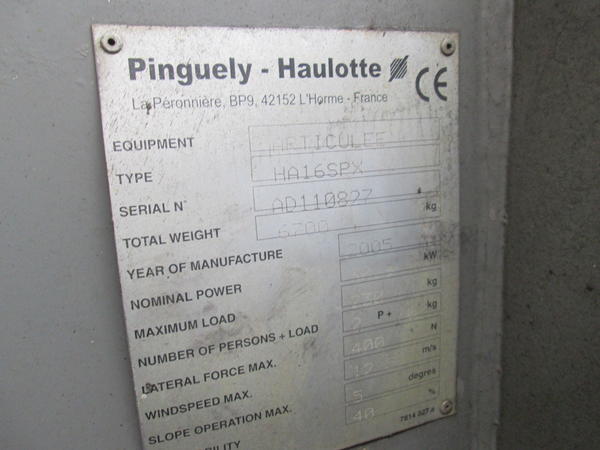 Pinguely - Haulotte
CE
La Péronnière, BP9, 42152 L'Horme - France
EQUIPMENT ARTICULEE
TYPE HA16SPX
SERIAL N° AD110827
TOTAL WEIGHT 6700 kg
YEAR OF MANUFACTURE 2005
NOMINAL POWER kW
MAXIMUM LOAD 230 kg
NUMBER OF PERSONS + LOAD 2 P + kg
LATERAL FORCE MAX. 400 N
WINDSPEED MAX. 12 m/s
SLOPE OPERATION MAX. 5 degres
40 %
7814 327 a